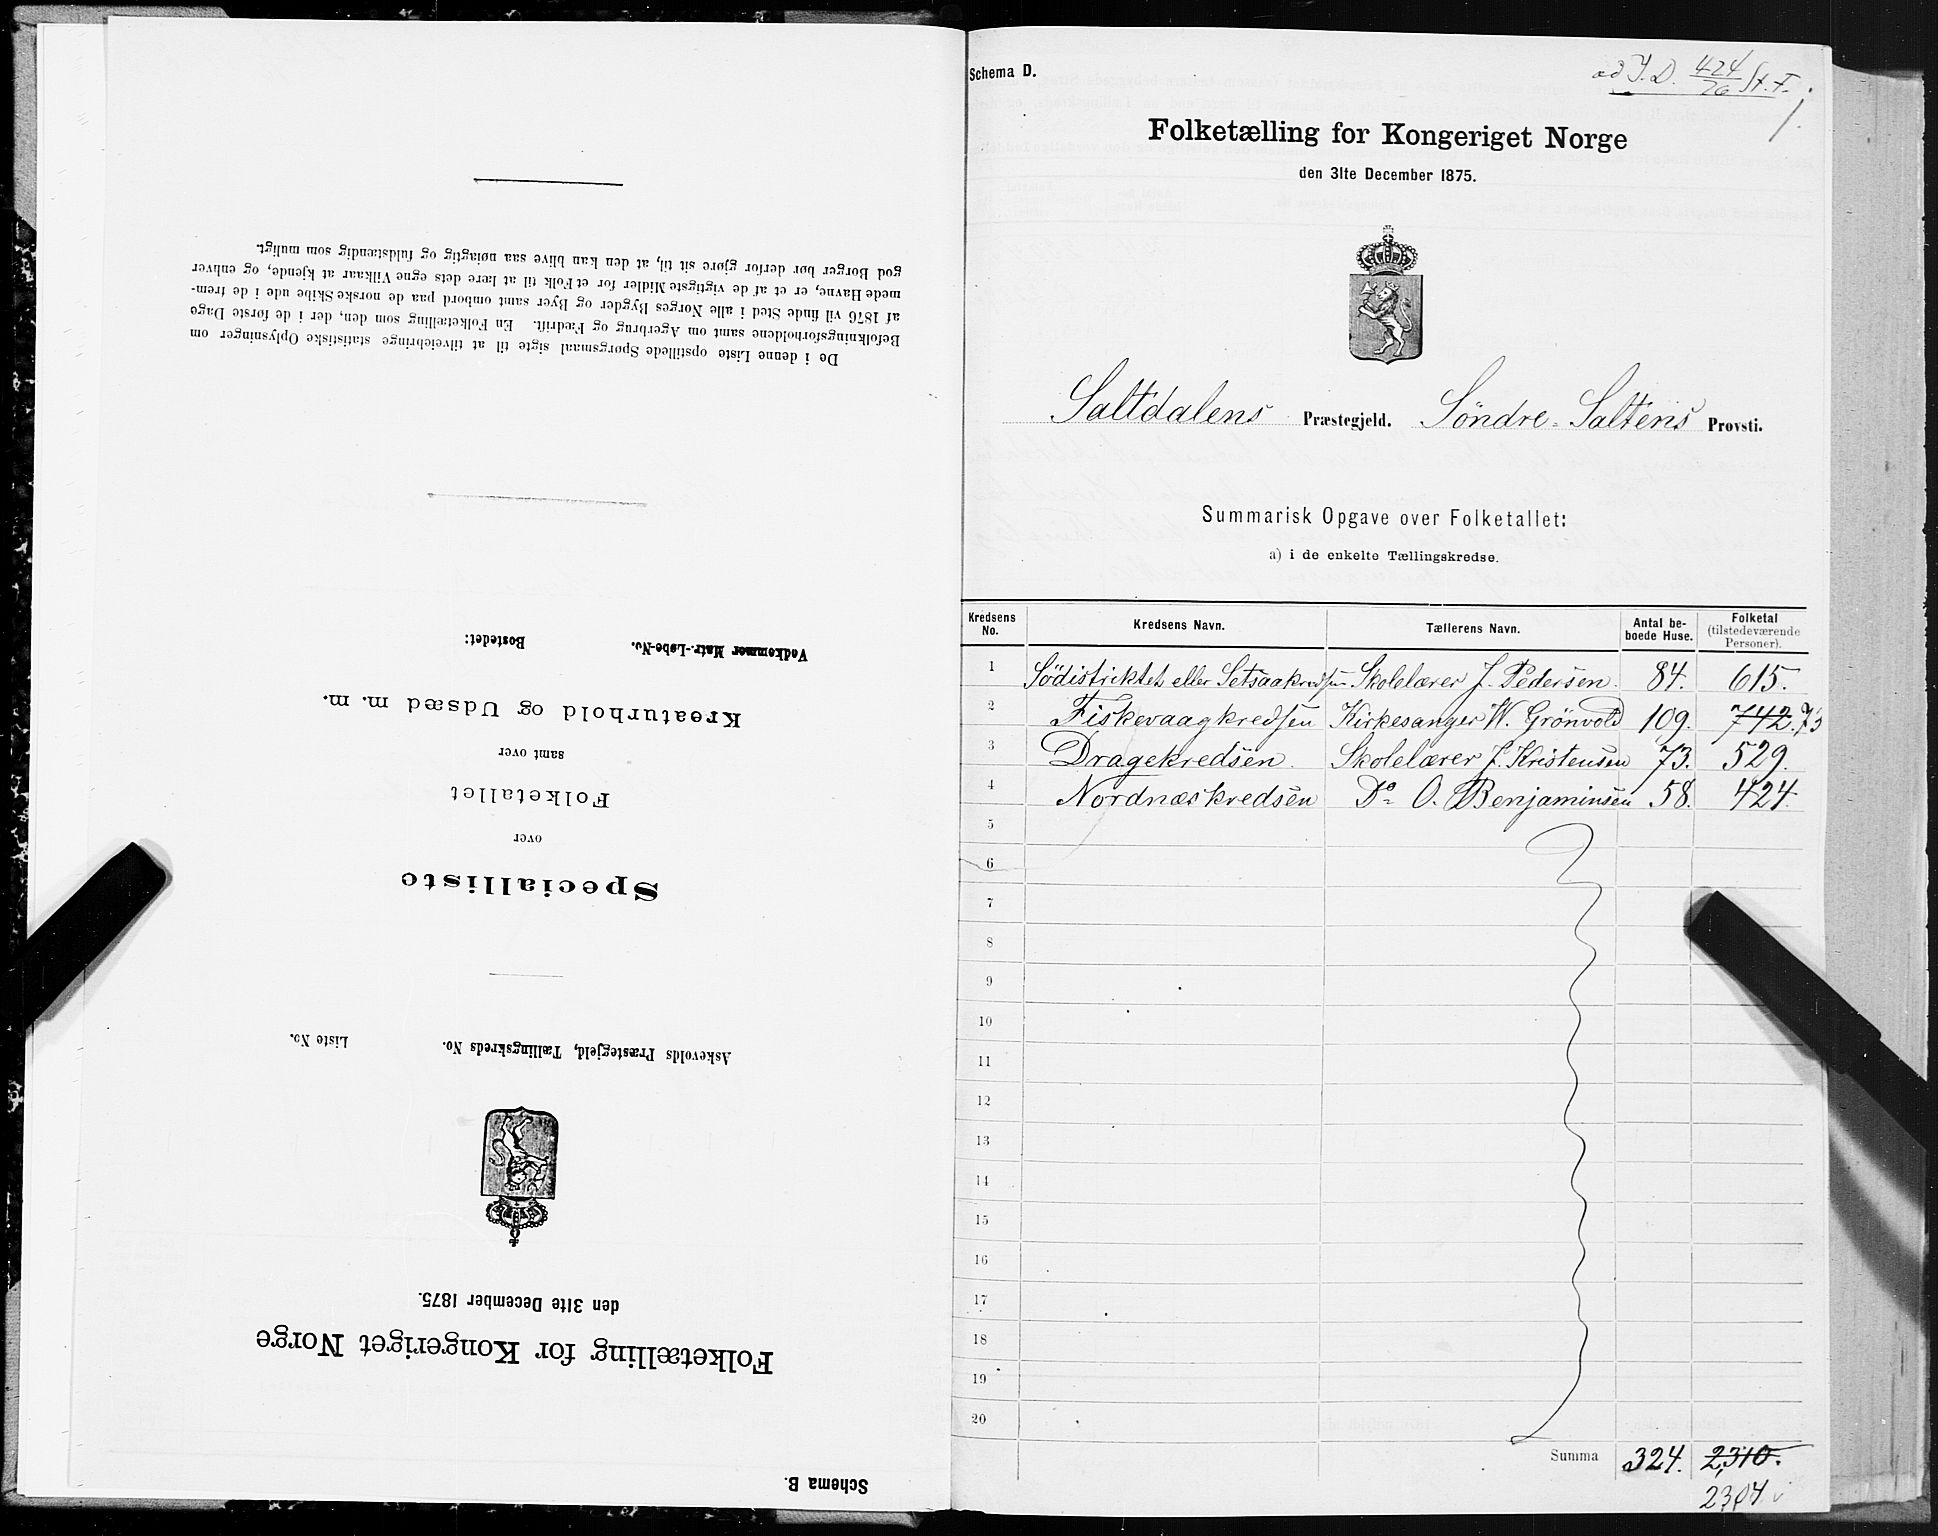 De i denne Liste opstillede Spørgsmaal sigte til at tilveiebringe statistiske Oplysninger om
Befolkningsforholdene samt om Agerbrug og Fædrift. En Folketælling som den, der i de første Dage
af 1876 vil finde Sted i alle Norges Bygder og Byer samt ombord paa de norske Skibe ude i de frem-
mede Havne, er et af de vigtigste Midler for et Folk til at lære dets egne Vilkaar at kjende, og enhver
god Borger bør derfor gjøre sit til, at den kan blive saa nøiagtig og fuldstændig som muligt.
Schema B.
Folketælling for Kongeriget Norge
den 31te December 1875.
Askevolds Præstegjeld, Tællingskreds No. Liste No.
Specialliste
over
Folketallet
samt over
Kreaturhold og Udsæd m. m.
Vedkommer Matr.-Løbe-No. Bostedet:
Schema D.
ad J. D. 424/76 St. F.
1.
Folketælling for Kongeriget Norge
den 31te December 1875.
Saltdalens Præstegjeld. Søndre-Saltens Provsti.
Summarisk Opgave over Folketallet:
a) i de enkelte Tællingskredse.
Kredsens No. Kredsens Navn. Tællerens Navn. Antal beboede Huse. Folketal (tilstedeværende Personer).
1 Södistriktet eller Setsaakredsen Skolelærer J. Pedersen. 84. 615.
2 Fiskevaagkredsen Kirkesanger W. Grönvold 109. 742. 73
3 Dragekredsen. Skolelærer J. Kristensen 73. 529.
4 Nordnæskredsen Do O. Benjaminsen 58. 424.
5
6
7
8
9
10
11
12
13
14
15
16
17
18
19
20
Summa 324. 2,310.
2304